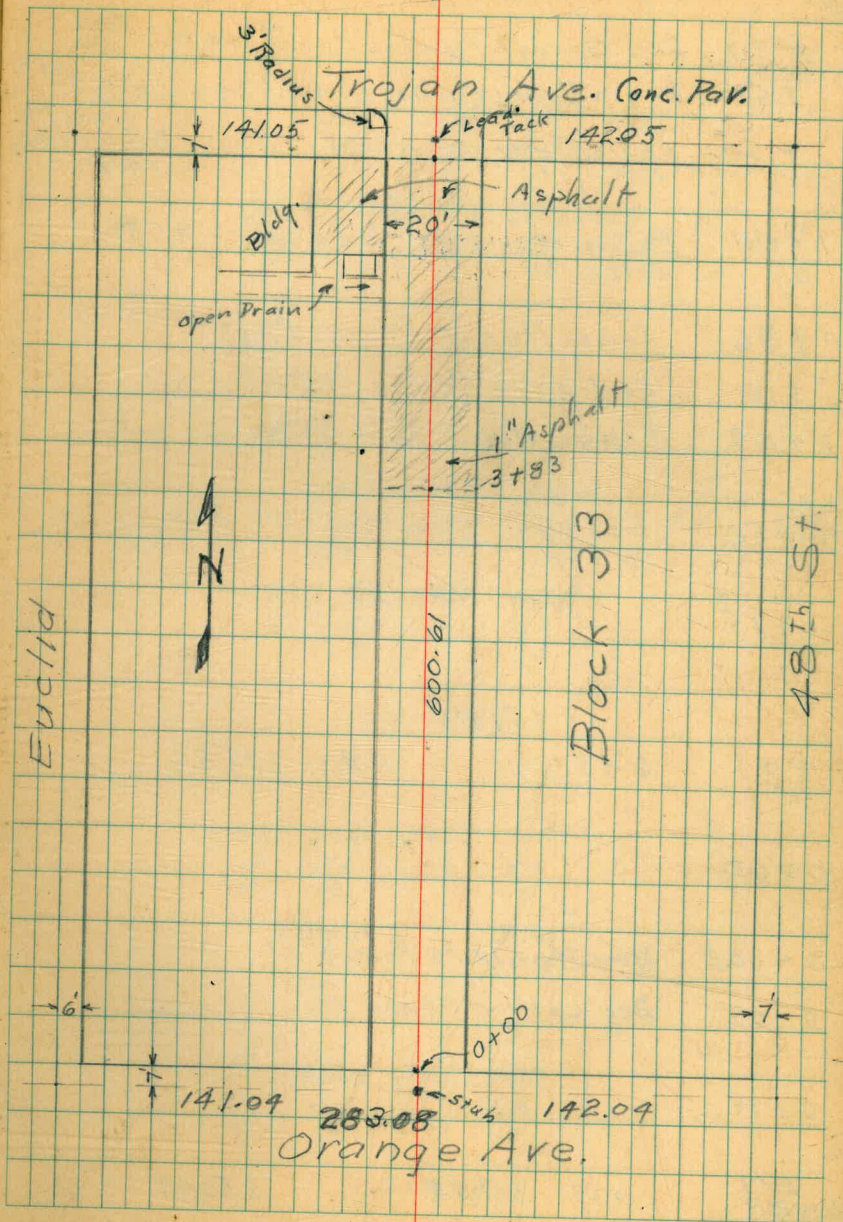 3' Radius
Trojan Ave. Conc. Pav.
7'
141.05
Lead.
Tack
142.05
Asphalt
Bldg.
20'
Open Drain
1" Asphalt
3+83
N
Euclid
600.61
Block 33
48th St.
6'
7'
0+00
7'
Stub
141.04
283.08
142.04
Orange Ave.